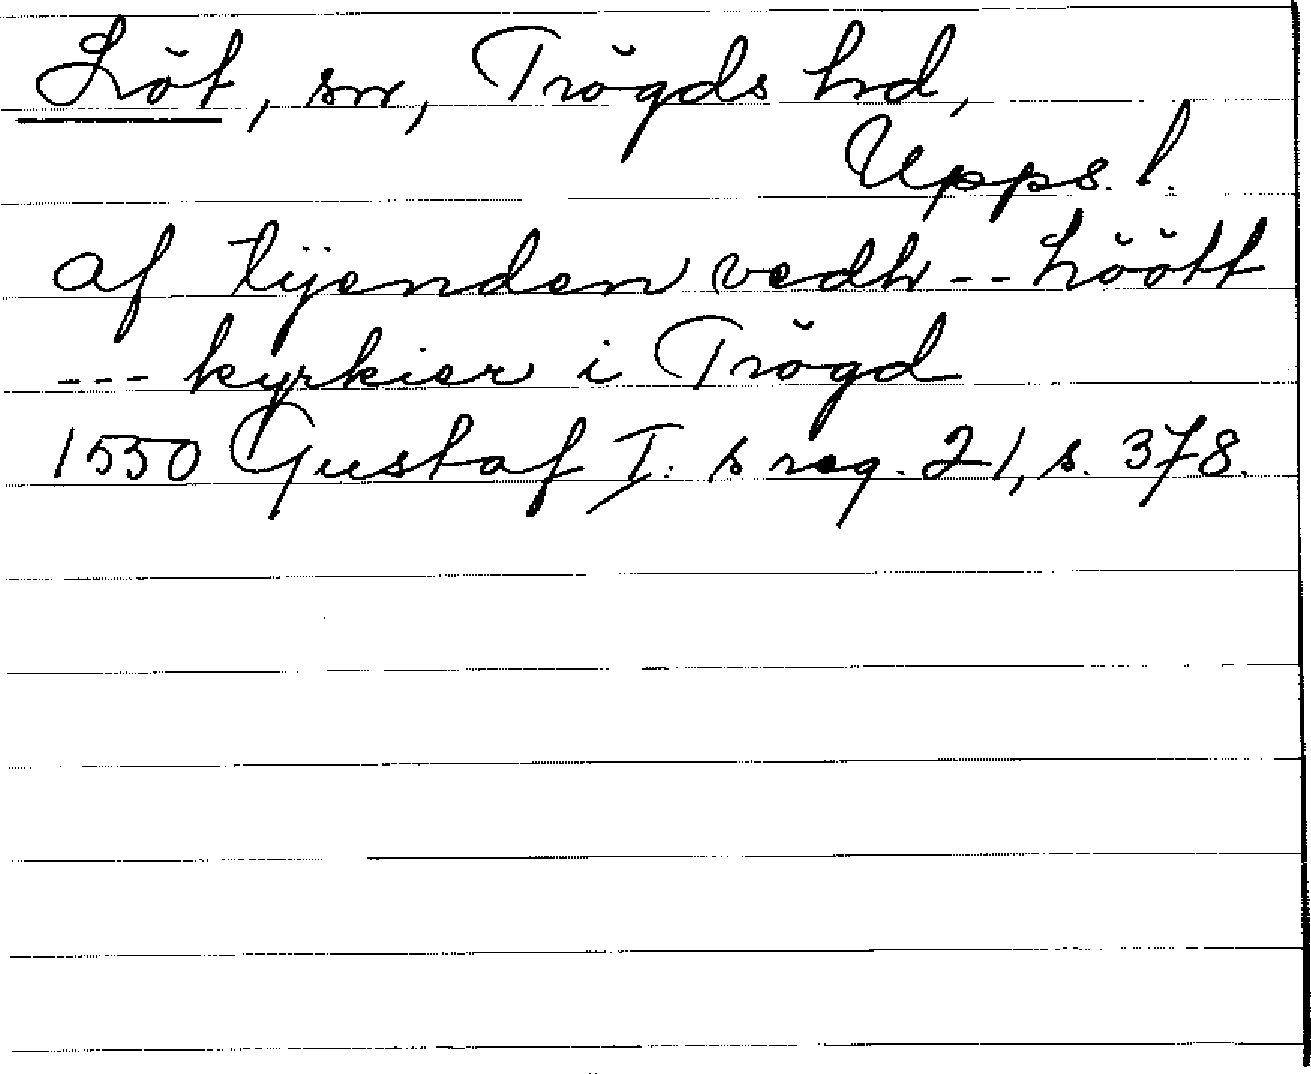 Löt, sn, Trögds hd,
Upps. l.
af tijenden vedh -- Löött
--- kyrkier i Trögd
1550 Gustaf I:s reg. 21, s. 378.